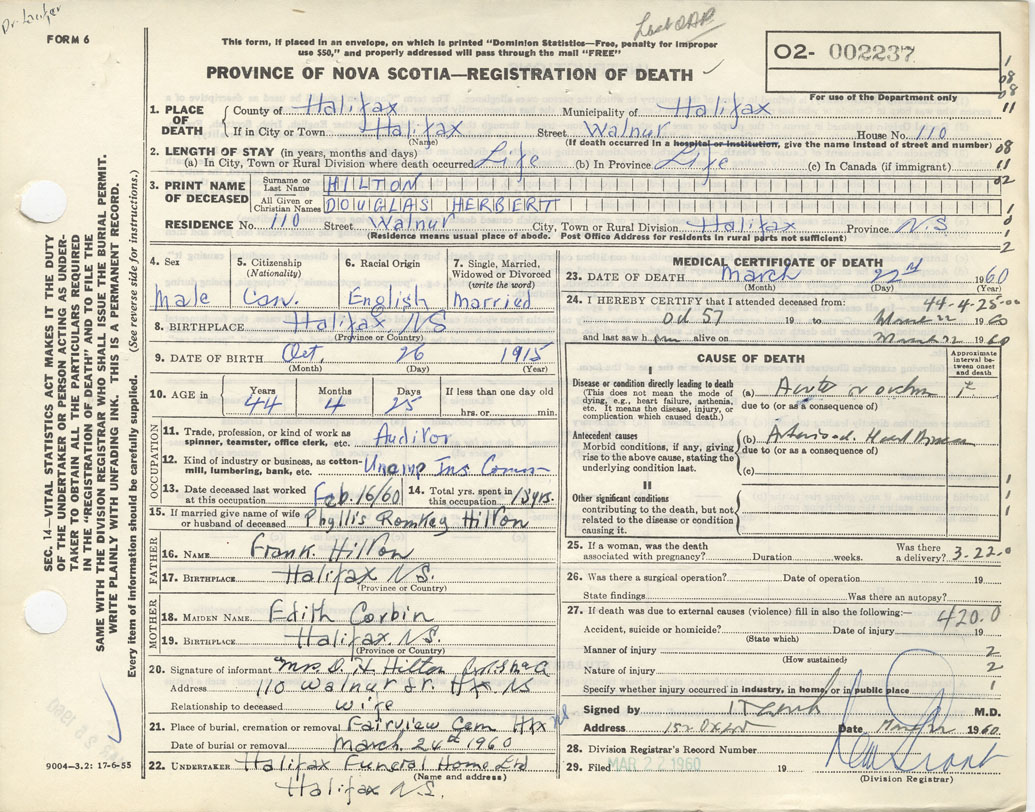 FORM 6
This form, if placed in an envelope, on which is printed "Dominion Statistics—Free, penalty for improper
use $50," and properly addressed will pass through the mail "FREE"
PROVINCE OF NOVA SCOTIA—REGISTRATION OF DEATH
O2- 002237
For use of the Department only
1. PLACE OF DEATH County of Halifax Municipality of Halifax
If in City or Town Halifax Street Walnur House No. 110
(Name) (If death occurred in a hospital or institution, give the name instead of street and number)
2. LENGTH OF STAY (in years, months and days)
(a) In City, Town or Rural Division where death occurred Life (b) In Province Life (c) In Canada (if immigrant)
3. PRINT NAME OF DECEASED Surname or Last Name HILTON
All Given or Christian Names DOUGLAS HERBERT
RESIDENCE No. 110 Street Walnur City, Town or Rural Division Halifax Province N.S
(Residence means usual place of abode. Post Office Address for residents in rural parts not sufficient)
4. Sex 5. Citizenship (Nationality) 6. Racial Origin 7. Single, Married, Widowed or Divorced (write the word)
Male Can. English Married
8. BIRTHPLACE Halifax NS
(Province or Country)
9. DATE OF BIRTH Oct. 26 1915
(Month) (Day) (Year)
10. AGE in Years Months Days If less than one day old
44 4 25 hrs. or min.
OCCUPATION
11. Trade, profession, or kind of work as spinner, teamster, office clerk, etc. Auditor
12. Kind of industry or business, as cotton-mill, lumbering, bank, etc. Unemp Ins Comm
13. Date deceased last worked at this occupation Feb. 16/60 14. Total yrs. spent in this occupation 18yrs.
15. If married give name of wife or husband of deceased Phyllis Romkey Hilton
FATHER
16. NAME Frank Hilton
17. BIRTHPLACE Halifax NS.
(Province or Country)
MOTHER
18. MAIDEN NAME Edith Corbin
19. BIRTHPLACE Halifax NS.
(Province or Country)
20. Signature of informant Mrs. D. H Hilton
Address 110 Walnur St. Hfx. NS
Relationship to deceased wife
21. Place of burial, cremation or removal Fairview Cem Hfx NS
Date of burial or removal March 24th 1960
22. UNDERTAKER Halifax Funeral Home Ltd
(Name and address)
Halifax NS.
9004—3.2: 17-6-55
MEDICAL CERTIFICATE OF DEATH
23. DATE OF DEATH March 22nd 1960
(Month) (Day) (Year)
44-4-25-00
24. I HEREBY CERTIFY that I attended deceased from:
Oct 57 19 to March 22 1960
and last saw him alive on March 22 1960
CAUSE OF DEATH
Approximate interval between onset and death
I
Disease or condition directly leading to death
(This does not mean the mode of dying, e.g., heart failure, asthenia, etc. It means the disease, injury, or complication which caused death.)
(a) Acute
due to (or as a consequence of)
Antecedent causes
Morbid conditions, if any, giving rise to the above cause, stating the underlying condition last.
(b) Heart Disease
due to (or as a consequence of)
(c)
II
Other significant conditions
contributing to the death, but not related to the disease or condition causing it.
25. If a woman, was the death associated with pregnancy? Duration weeks. Was there a delivery? 3-22-0
26. Was there a surgical operation? Date of operation 19
State findings Was there an autopsy?
27. If death was due to external causes (violence) fill in also the following:— 420.0
Accident, suicide or homicide? Date of injury 19
(State which)
Manner of injury 2
(How sustained)
Nature of injury 2
Specify whether injury occurred in industry, in home, or in public place 1
Signed by M.D.
Address Date March 1960
28. Division Registrar's Record Number
29. Filed MAR 22 1960 19
(Division Registrar)
SEC. 14—VITAL STATISTICS ACT MAKES IT THE DUTY
OF THE UNDERTAKER OR PERSON ACTING AS UNDER-
TAKER TO OBTAIN ALL THE PARTICULARS REQUIRED
IN THE "REGISTRATION OF DEATH" AND TO FILE THE
SAME WITH THE DIVISION REGISTRAR WHO SHALL ISSUE THE BURIAL PERMIT.
WRITE PLAINLY WITH UNFADING INK. THIS IS A PERMANENT RECORD.
Every item of information should be carefully supplied. (See reverse side for instructions.)